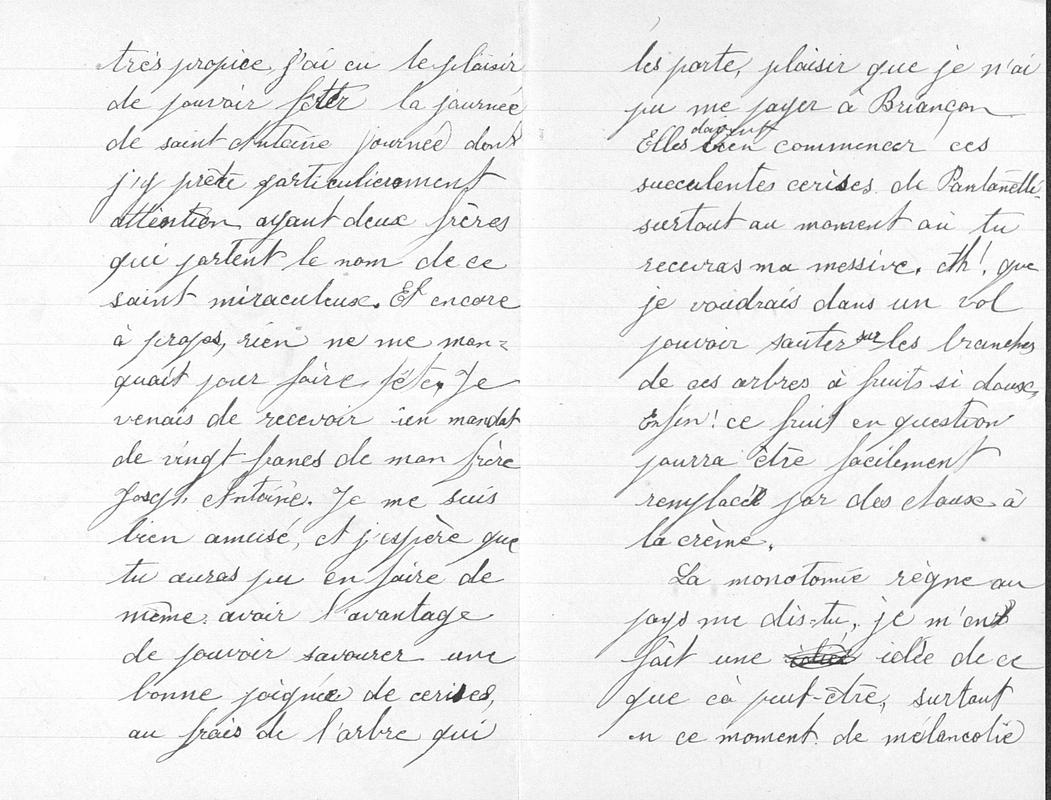 très propice j'ai eu le plaisir
de pouvoir fêter la journée
de saint Antoine journée dont
j'y prète particulierement
attention ayant deux frères
qui portent le nom de ce
saint miraculeux. Et encore
à propos, rien ne me man=
quait pour faire fête, Je
venais de recevoir un mandat
de vingt francs de mon frère
Josep Antoine. Je me suis
bien amusé, et j'espère que
tu auras pu en faire de
même avoir l'avantage
de pouvoir savourer une
bonne poignée de cerises,
au frais de l'arbre qui
les porte, plaisir que je n'ai
pu me payer à Briançon
Elles doivent bien commencer ces
succulentes cerises de Pantanelli
surtout au moment où tu
recevras ma messive. Ah! que
je voudrais dans un vol
pouvoir sauter sur les branches
de ces arbres à fruits si doux,
Enfin! ce fruit en question
pourra être facilement
remplacé par des choux à
la crème.
La monotomie règne au
pays me dis-tu, je m'en
fait une idée de ce
que cà peut-être, surtout
en ce moment de mélancolie